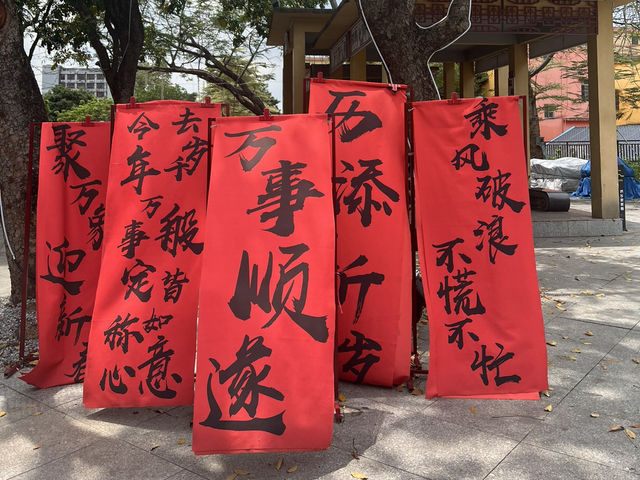 聚万象
迎新春
去岁千般皆如意
今年万事定称心
万事顺遂
历添新岁
乘风破浪
不慌不忙